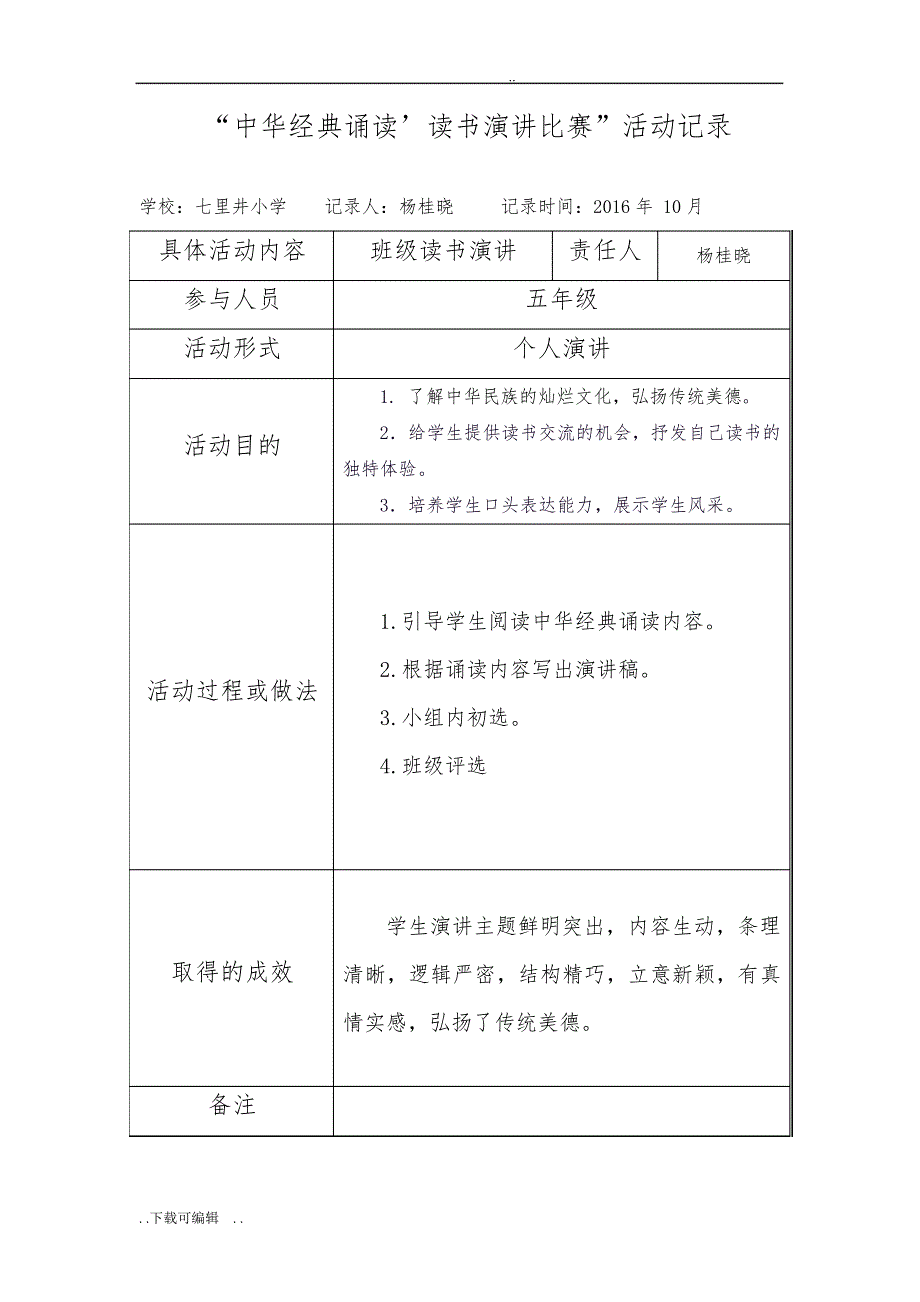 ..
“中华经典诵读’读书演讲比赛”活动记录
学校：七里井小学 记录人：杨桂晓 记录时间：2016年 10月
具体活动内容 班级读书演讲 责任人 杨桂晓
参与人员 五年级
活动形式 个人演讲
活动目的
1. 了解中华民族的灿烂文化，弘扬传统美德。
2．给学生提供读书交流的机会，抒发自己读书的
独特体验。
3．培养学生口头表达能力，展示学生风采。
活动过程或做法
1.引导学生阅读中华经典诵读内容。
2.根据诵读内容写出演讲稿。
3.小组内初选。
4.班级评选
取得的成效
学生演讲主题鲜明突出，内容生动，条理
清晰，逻辑严密，结构精巧，立意新颖，有真
情实感，弘扬了传统美德。
备注
..下载可编辑 ..